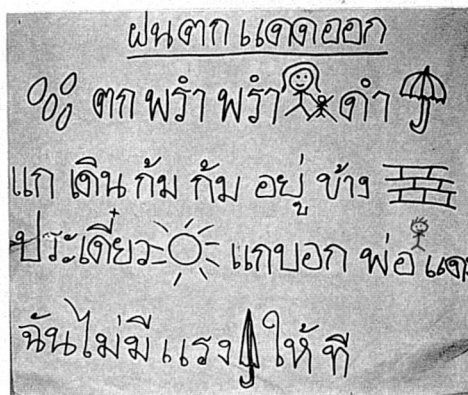 ฝนตก แดดออก
ตก พรำ พรำ ดำ
แก เดิน ก้ม ก้ม อยู่ ข้าง
ประเดี๋ยว แกบอก พ่อ แดะ
ฉันไม่มี แรง ให้ ที